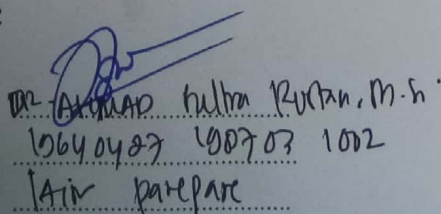 DR. AHMAD Sultra Rustan, M.Si
19640427 198703 1002
IAIN parepare